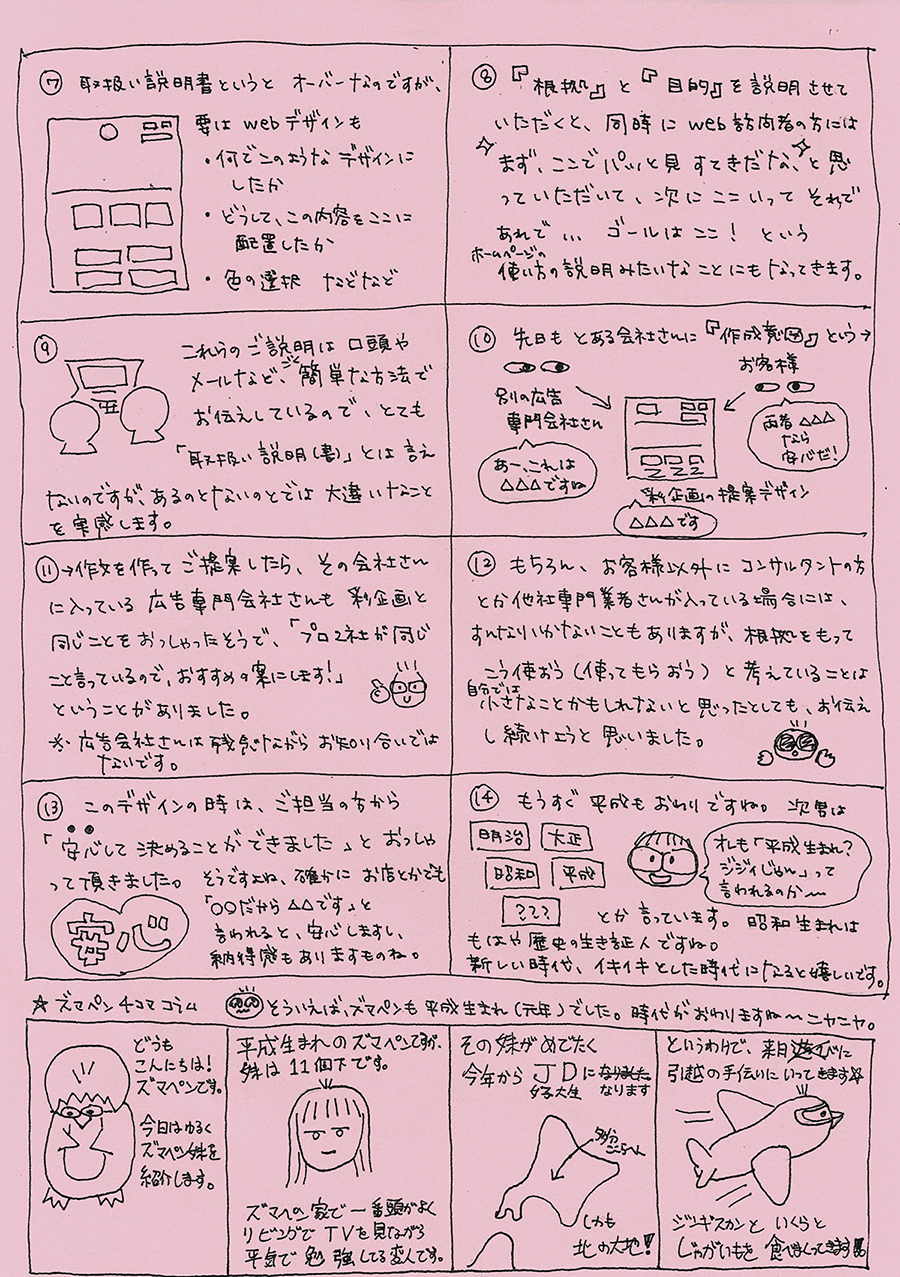 ⑦ 取扱い説明書というと オーバーなのですが、
要は webデザインも
・何でこのようなデザインに
したか
・どうして、この内容をここに
配置したか
・色の選択 などなど
⑧ 『根拠』と『目的』を説明させて
いただくと、同時にweb訪問者の方には
まず、ここでパッと見 すてきだな、と思
っていただいて、次に ここいって それで
あれで … ゴールはここ! という
ホームページの
使い方の説明みたいなことにもなってきます。
⑨ これらのご説明は口頭や
メールなど、ごく簡単な方法で
お伝えしているので、とても
「取扱い説明(書)」とは言え
ないのですが、あるのとないのとでは 大違いなこと
を実感します。
⑩ 先日も とある会社さんに『作成意図』という→
お客様
別の広告
専門会社さん
両者△△△
なら
安心だ!
あー、これは
△△△ですね
彩企画の提案デザイン
△△△です
⑪→作文を作って ご提案したら、その会社さん
に入っている 広告専門会社さんも 彩企画と
同じことを おっしゃったそうで、「プロ2社が同じ
こと言っているので、おすすめの案にします!」
ということがありました。
※ 広告会社さんは残念ながら お知り合いでは
ないです。
⑫ もちろん、お客様以外に コンサルタントの方
とか他社専門業者さんが入っている場合には、
すんなりいかないこともありますが、根拠をもって
こう使おう(使ってもらおう)と 考えていることは
自分では
小さなことかもしれないと 思ったとしても、お伝え
し続けようと 思いました。
⑬ このデザインの時は、ご担当の方から
「安心して 決めることができました」と おっしゃ
って頂きました。 そうですよね、確かに お店とかでも
「○○だから△△です」と
言われると、安心しますし、
納得感もありますものね。
安心
⑭ もうすぐ 平成も おわりですね。 次男は
明治 大正
昭和 平成
???
オレも「平成生まれ?
ジジイじゃん」って
言われるのか〜
とか 言っています。 昭和生まれは
もはや 歴史の生き証人ですね。
新しい時代、イキイキとした時代になると嬉しいです。
☆ズマペン4コマコラム
そういえば、ズマペンも 平成生まれ(元年)でした。時代がおわりますね〜ニヤニヤ。
どうも
こんにちは!
ズマペンです。
今日はゆるく
ズマペン妹を
紹介します。
平成生まれのズマペンですが、
妹は 11個下です。
ズマペン家で一番頭がよく
リビングで TVを見ながら
平気で 勉強してる変人です。
その妹がめでたく
今年から JDになりましたなります
女子大生
多分
ここらへん
しかも
北の大地!!
というわけで、来月遊びに
引越の手伝いにいってきます☆
ジンギスカンと いくらと
じゃがいもを 食べまくってきます!!